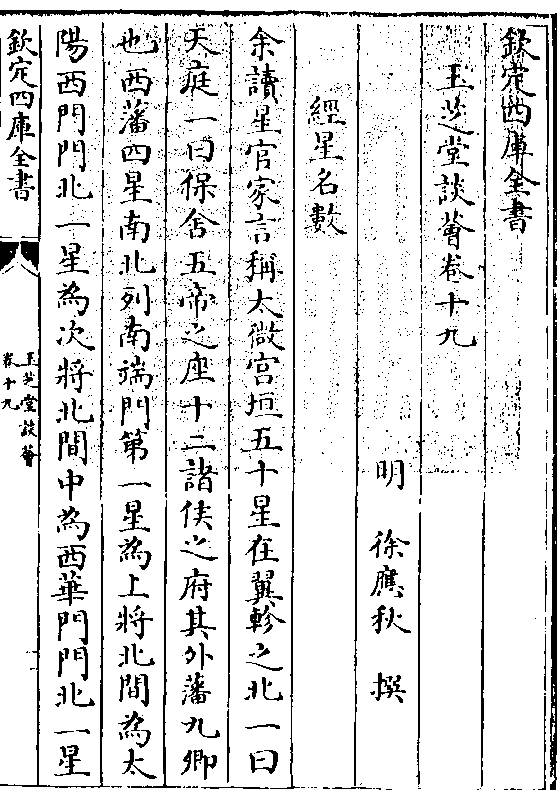 欽定四庫全書
玉芝堂談薈卷十九
明　徐應秋　撰
經星名數
余讀星官家言稱太微宮垣五十星在翼軫之北一曰
天庭一曰保舍五帝之座十二諸侯之府其外藩九卿
也西藩四星南北列南端門第一星為上將北間為太
陽西門門北一星為次將北間中為西華門門北一星
欽定四庫全書
玉芝堂談薈
卷十九